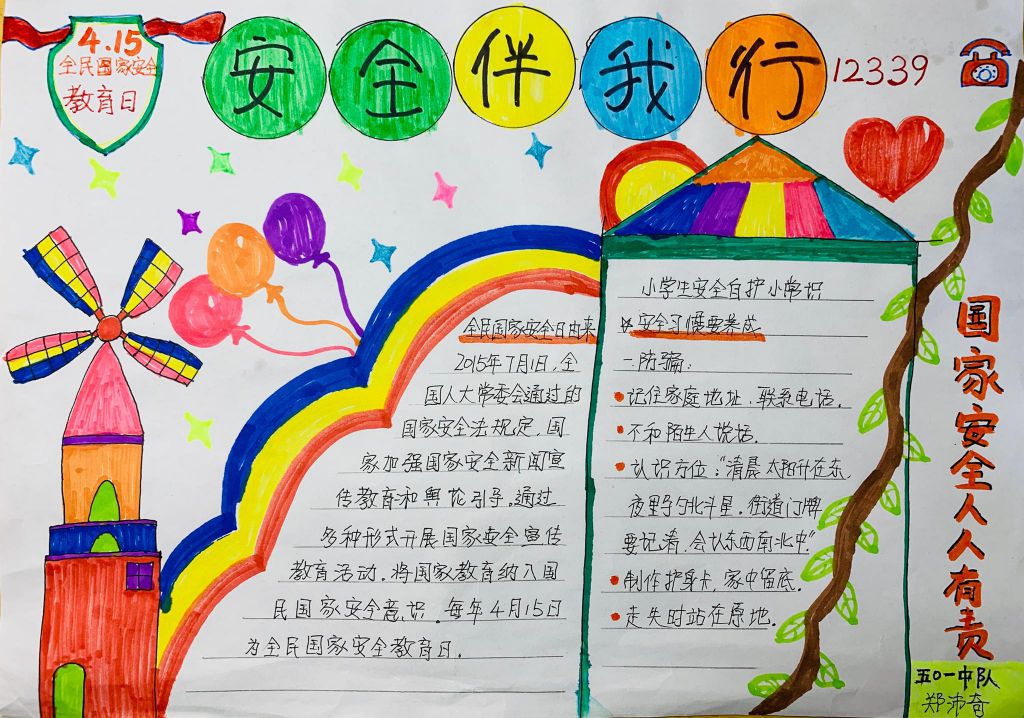 4.15
全民国家安全
教育日
安全伴我行
12339
全民国家安全日由来
2015年7月1日,全
国人大常委会通过的
国家安全法规定,国
家加强国家安全新闻宣
传教育和舆论引导,通过
多种形式开展国家安全宣传
教育活动.将国家教育纳入国
民国家安全意识.每年4月15日
为全民国家安全教育日.
小学生安全自护小常识
☆安全习惯要养成
一防骗:
•记住家庭地址,联系电话.
•不和陌生人说话.
•认识方位:"清晨太阳升在东,
夜里勺北斗星.街道门牌
要记清,会认东西南北中."
•制作护身卡,家中留底.
•走失时站在原地.
国家安全人人有责
五〇一中队
郑沛奇